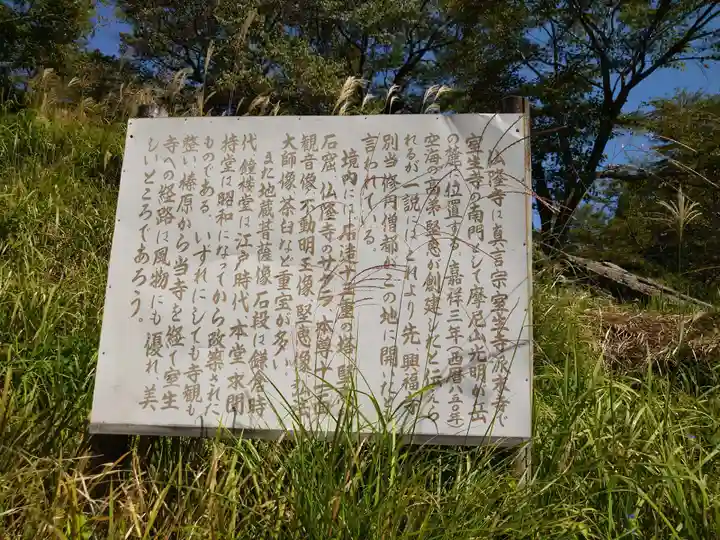 仏隆寺は真言宗室生寺派末寺で
室生寺の南門として摩尼山光明ヶ岳
の麓に位置する 嘉祥三年(西暦八五〇年)
空海の高弟堅恵が創建したと伝えら
れるが一説にはこれより先 興福寺
別当修円僧都がこの地に開いたと
言われている。
境内には石造十三重の塔 堅恵の
石窟 仏隆寺のサクラ 本尊十一面
観音像 不動明王像 堅恵像 弘法
大師像 茶臼など重宝が多い
また地蔵菩薩像 石段は鎌倉時
代 鐘楼堂は江戸時代 本堂 求聞
持堂は昭和になってから改築された
ものである いずれにしても寺観も
整い 榛原から当寺を経て室生
寺への経路は風物にも優れ 美
しいところであろう。